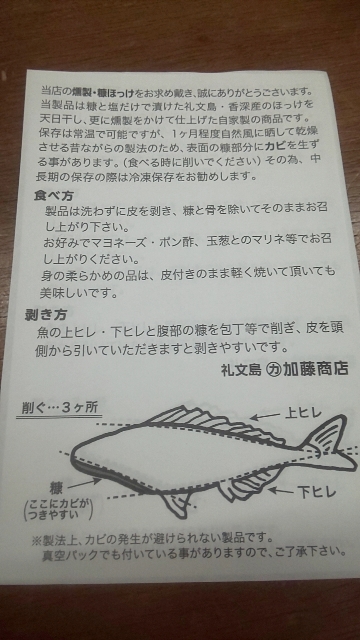 当店の燻製・糠ほっけをお求め戴き、誠にありがとうございます。
当製品は糠と塩だけで漬けた礼文島・香深産のほっけを
天日干し、更に燻製をかけて仕上げた自家製の商品です。
保存は常温で可能ですが、1ヶ月程度自然風に晒して乾燥
させる昔ながらの製法のため、表面の糠部分にカビを生ず
る事があります。(食べる時に削いでください)その為、中
長期の保存の際は冷凍保存をお勧めします。
食べ方
製品は洗わずに皮を剥き、糠と骨を除いてそのままお召
し上がり下さい。
お好みでマヨネーズ・ポン酢、玉葱とのマリネ等でお召
し上がりください。
身の柔らかめの品は、皮付きのまま軽く焼いて頂いても
美味しいです。
剥き方
魚の上ヒレ・下ヒレと腹部の糠を包丁等で削ぎ、皮を頭
側から引いていただきますと剥きやすいです。
礼文島 ㋕加藤商店
削ぐ…3ヶ所
上ヒレ
糠
(ここにカビが
つきやすい)
下ヒレ
※製法上、カビの発生が避けられない製品です。
真空パックでも付いている事がありますので、ご了承下さい。